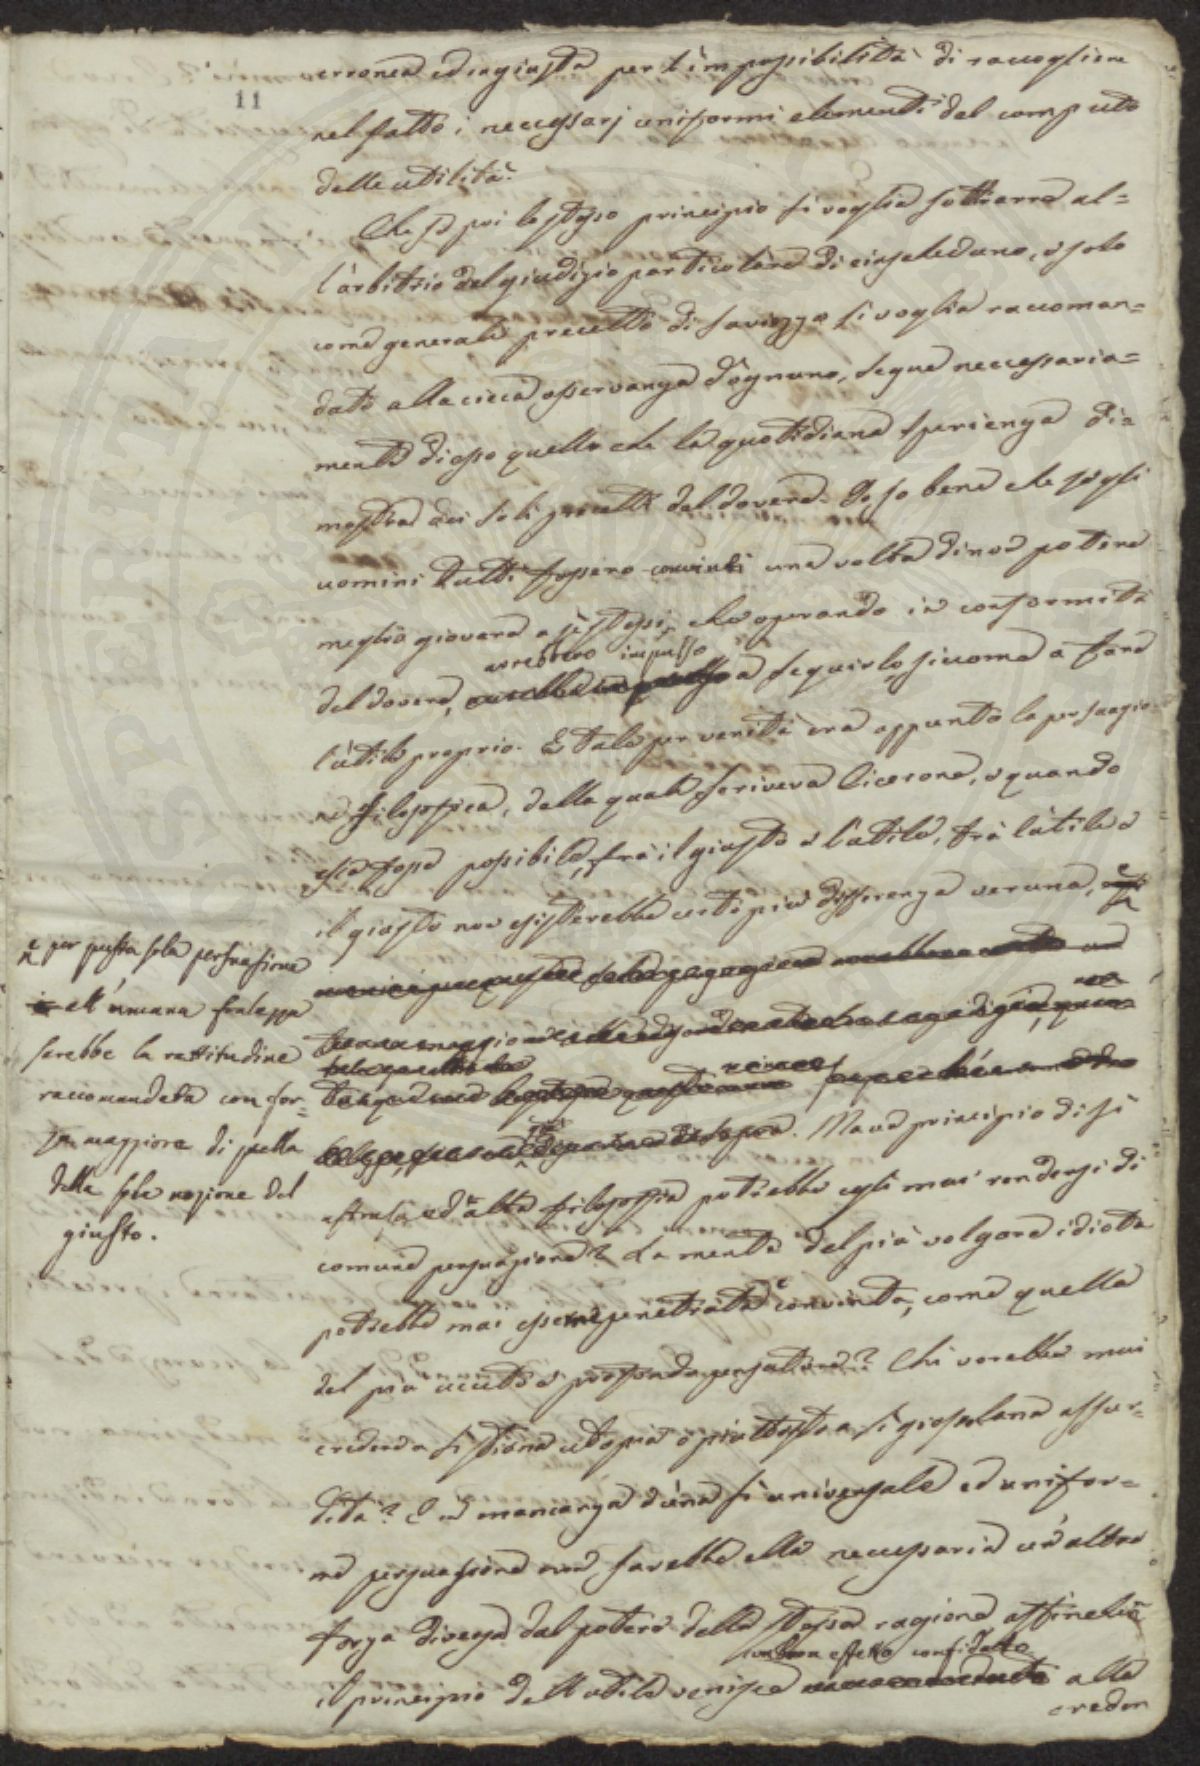 11
erronea ed ingiusta per l'impossibilità di raccogliere
nel fatto i necessarj uniformi elementi del computo
delle utilità.
Che se poi lo stesso principio si voglia sottrarre al-
l'arbitrio del giudizio particolare di ciascheduno, e solo
come generale precetto di saviezza si voglia raccoman-
dato alla cieca osservanza d'ognuno, segue necessaria-
mente di esso quello che la quotidiana sperienza di-
mostra dei soli precetti del dovere. Io so bene che se gli
uomini tutti fossero convinti una volta di non potere
meglio giovare a se stessi, che operando in conformità
avrebbero impulso
del dovere, a seguirlo, siccome a fare
l'utile proprio. E tale per verità era appunto la persuasio-
ne filosofica, della quale scriveva Cicerone, e quando
essa fosse possibile, fra il giusto e l'utile, fra l'utile e
il giusto non esisterebbe certo più differenza veruna,
e per questa sola persuasione
all'umana fralezza
sarebbe la rettitudine
raccomandata con for-
za maggiore di quella
della sola nozione del
giusto.
Ma un principio di sì
astrusa, ed alta filosofia potrebbe egli mai rendersi di
comune persuasione? La mente del più volgare idiota
potrebbe mai essere penetrata e convinta, come quella
del più acuto e profondo pensatore? Chi vorebbe mai
credere a sì strana utopia o piuttosto a sì grossolana assur-
dità? E in mancanza d'una sì universale ed unifor-
me persuasione non sarebbe ella necessaria un'altra
forza diversa dal potere della stessa ragione affinchè
con buon effetto confidato
il principio dell'utile venisse alla
creden